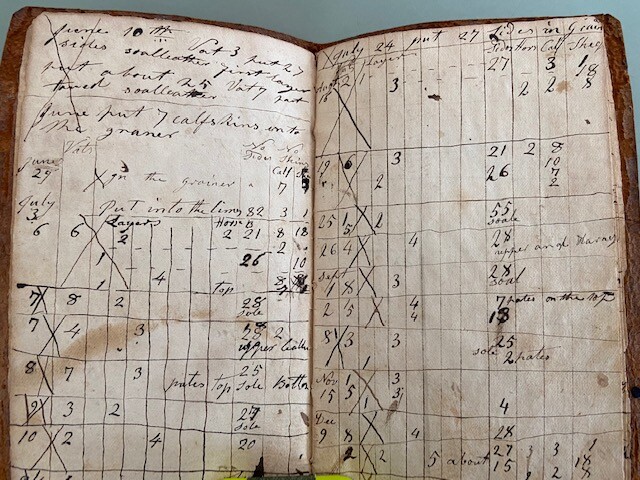 June 10th Vat 3 put 27
sides soalleather first layer
put about 25 Vat 7 hat
soalleather
June put 7 calfskins into
the graner
Vats No Sides No Skins
Calf
June 29 X in the grainer 7
July
3 Put into the lime 82 3 1
Layers Horse
6 6 2 2 21 8 18
2
1 26 10
1 4 8
top
7 8 2 28
sole
7 4 3 28 2
upper leather
8 7 3 25
pates top Sole Bottom
9 3 2 27
Sole
10 2 4 20
July 24 put 27 Sides in Grain
Layers Sides Hors Calf Shep
27 3 1
18
2 1 3 2 2 8
16
19 6 3 21 2 8
10
2 26 7
2
25 1 2 55
5 soale
26 4 4 28
upper and Harnes
Sept 28
1 8 3 Soal
2 5 4 7 pates on the top
4 13
8 3 3 25
sole 2 pates
1
Nov 1 3
15 5 3
1 4
Dec
9 8 4 28
2 2 27 3 1
5 about 15 18